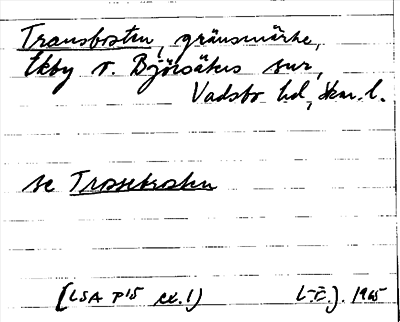 Transbosten, gränsmärke,
Ekby o. Björsäters snr,
Vadsbo hd, Skar. l.
se Trossebrosten
[LSA P15 ex. 1) 1965